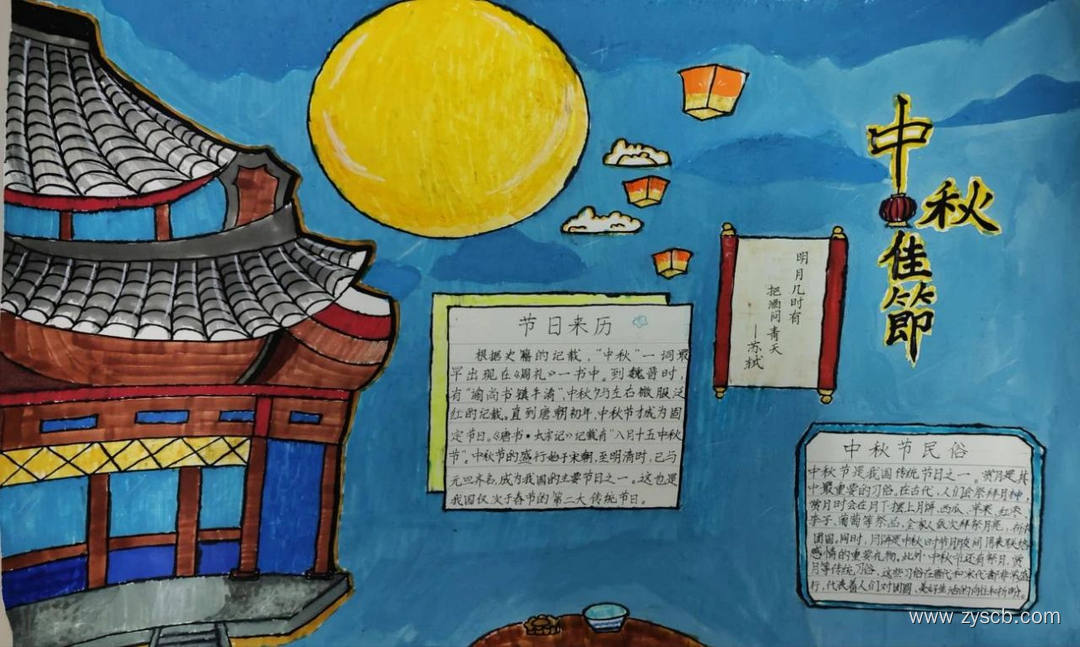 中
秋
佳
節
明月几时有
把酒问青天
—苏轼
节日来历
根据史籍的记载，“中秋”一词最
早出现在《周礼》一书中。到魏晋时，
有“谕尚书镇牛渚，中秋夕与左右微服泛
江的记载。直到唐朝初年，中秋节才成为固
定节日。《唐书·太宗记》记载有“八月十五中秋
节”。中秋节的盛行始于宋朝，至明清时，已与
元旦齐名，成为我国的主要节日之一。这也是
我国仅次于春节的第二大传统节日。
中秋节民俗
中秋节是我国传统节日之一。赏月是其
中最重要的习俗，在古代，人们会祭拜月神，
赏月时会在月下摆上月饼、西瓜、苹果、红枣
李子、葡萄等祭品，全家人依次拜祭月亮，
团圆。同时，月饼是中秋时节朋友间用来联络
感情的重要礼物。此外，中秋节还有祭月、赏
月等传统习俗，这些习俗在唐代和宋代都非常盛
行，代表着人们对团圆、美好生活的向往和祈盼。
www.zyscb.com